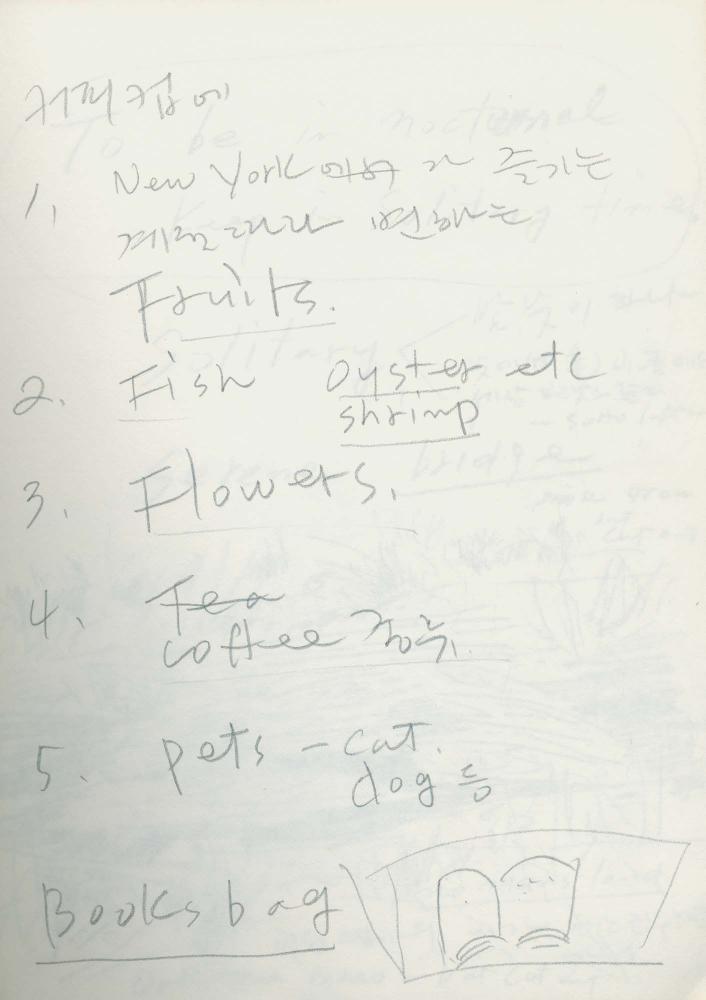 커피컵에
1. New York에서 가 즐기는
계절따라 변하는
Fruits.
2. Fish oyster etc
shrimp
3. Flowers.
4. Tea
coffee 종류.
5. pets – cat.
dog 등
Books bag